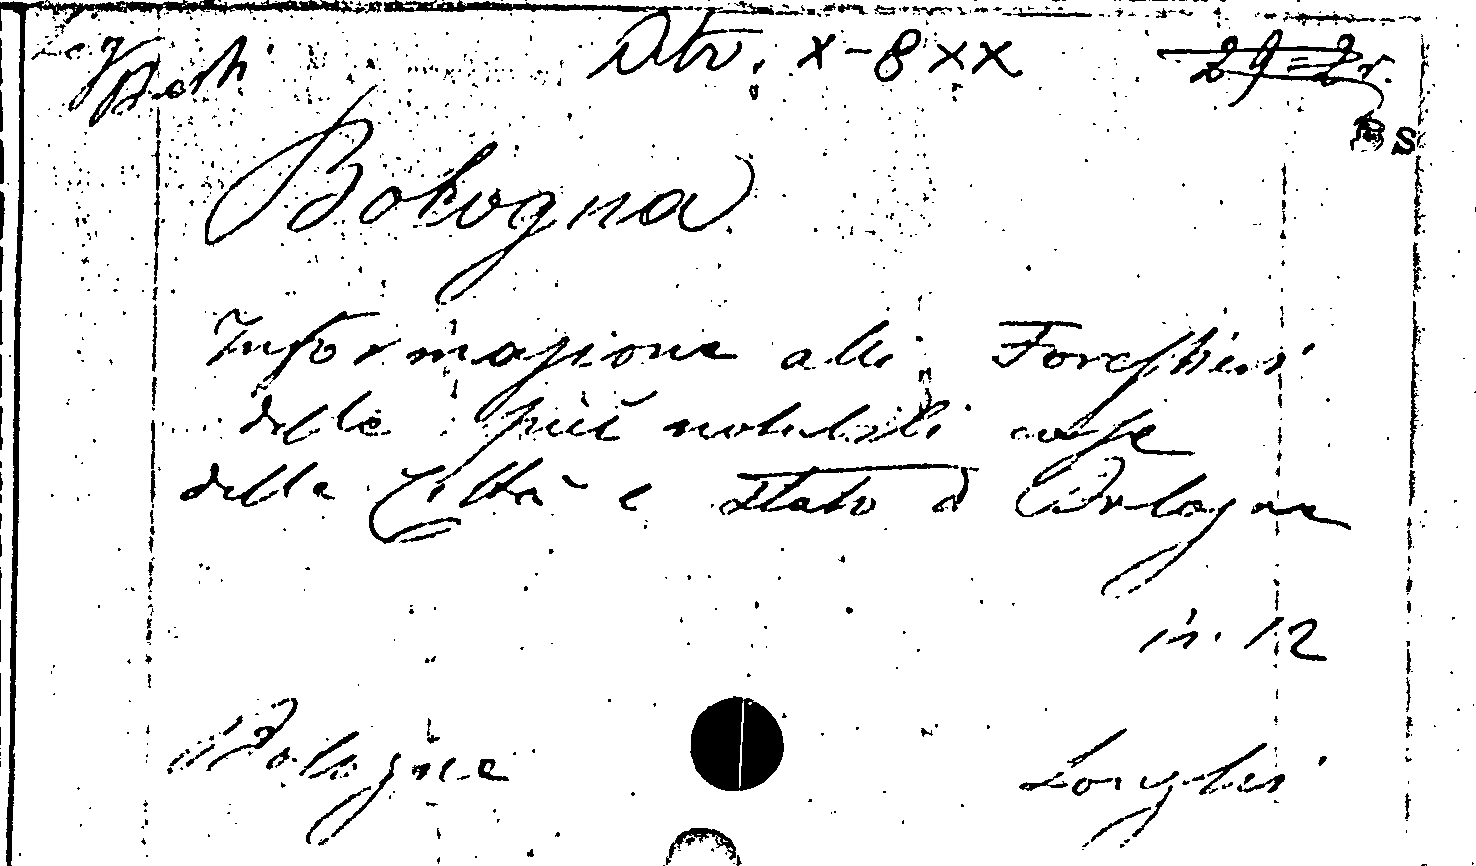 Atr. X-8XX 29-2r.
BS
Bologna
Informazione alli Foresthieri
delle più notabili cose
della Città e Stato d Bologna
in. 12
Bologne Longhi